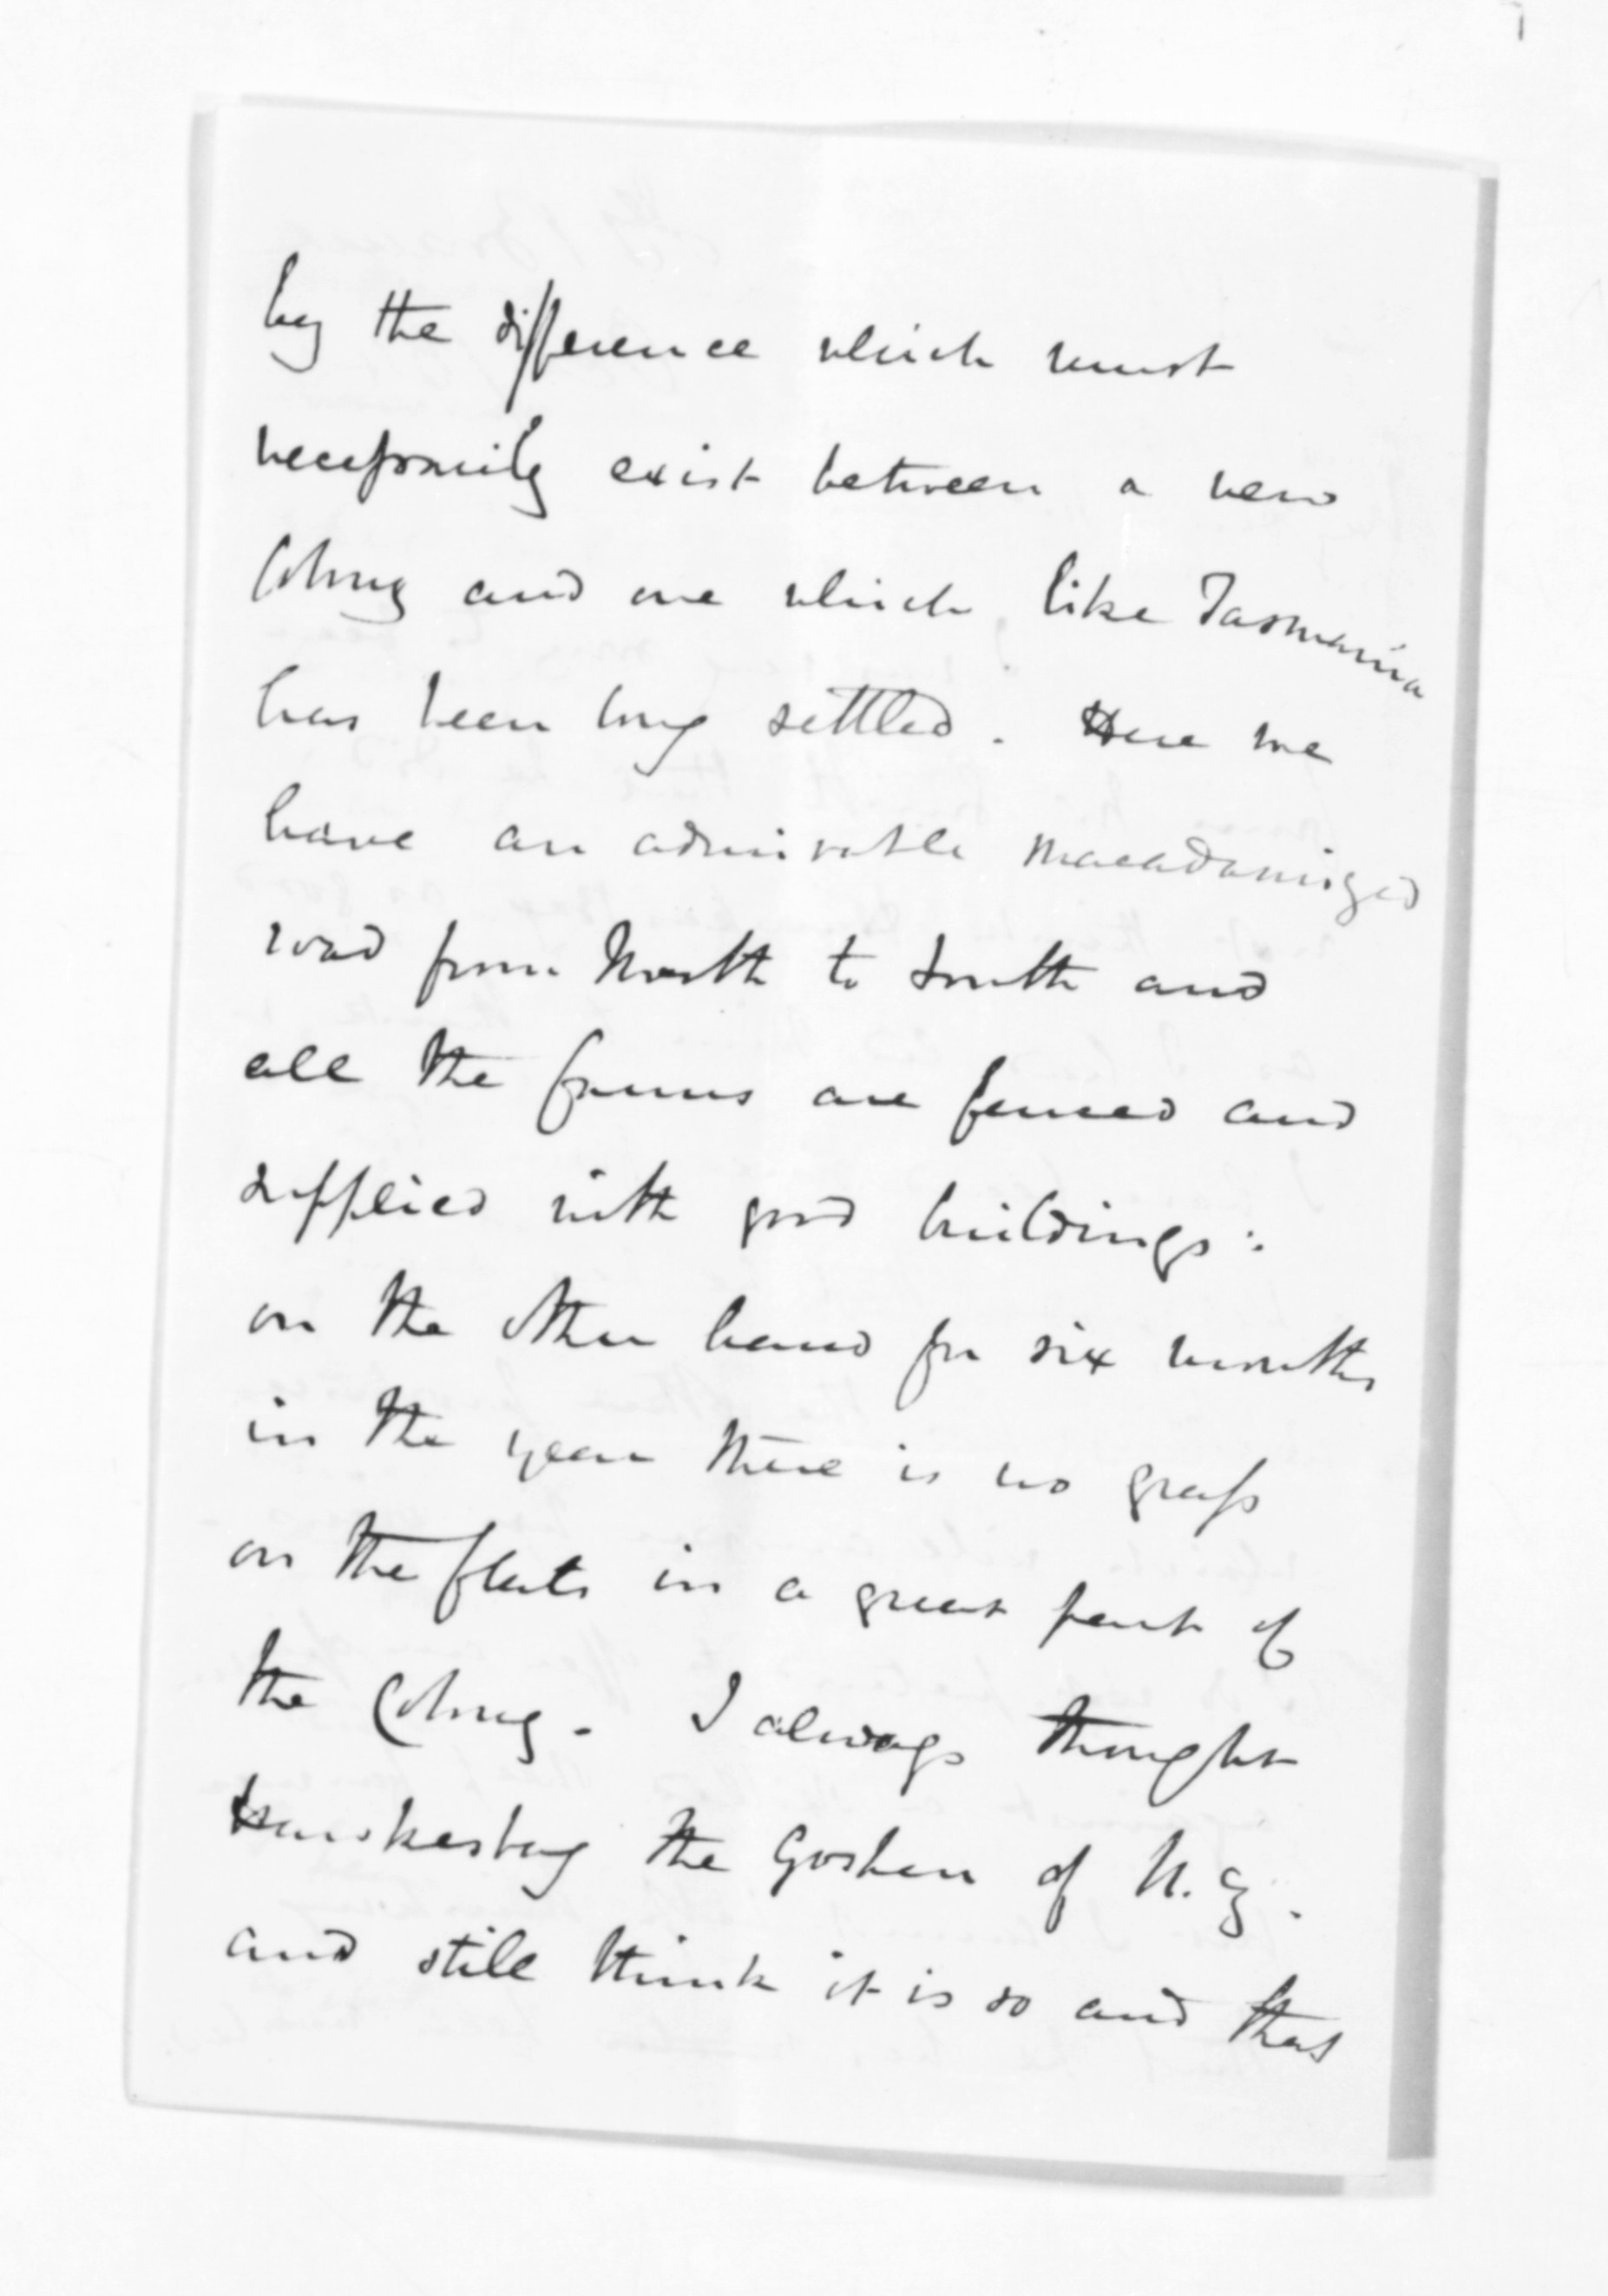 by the difference which must
necessarily exist between a new
Colony and one which like Tasmania
has been long settled. Here we
have an admirable macadamized
road from North to South and
all the farms are fenced and
supplied with good buildings:
on the other hand for six months
in the year there is no grass
on the flats in a great part of
the Colony. I always thought
Hawkesbay the Goshen of N.Z.
and still think it is so and that